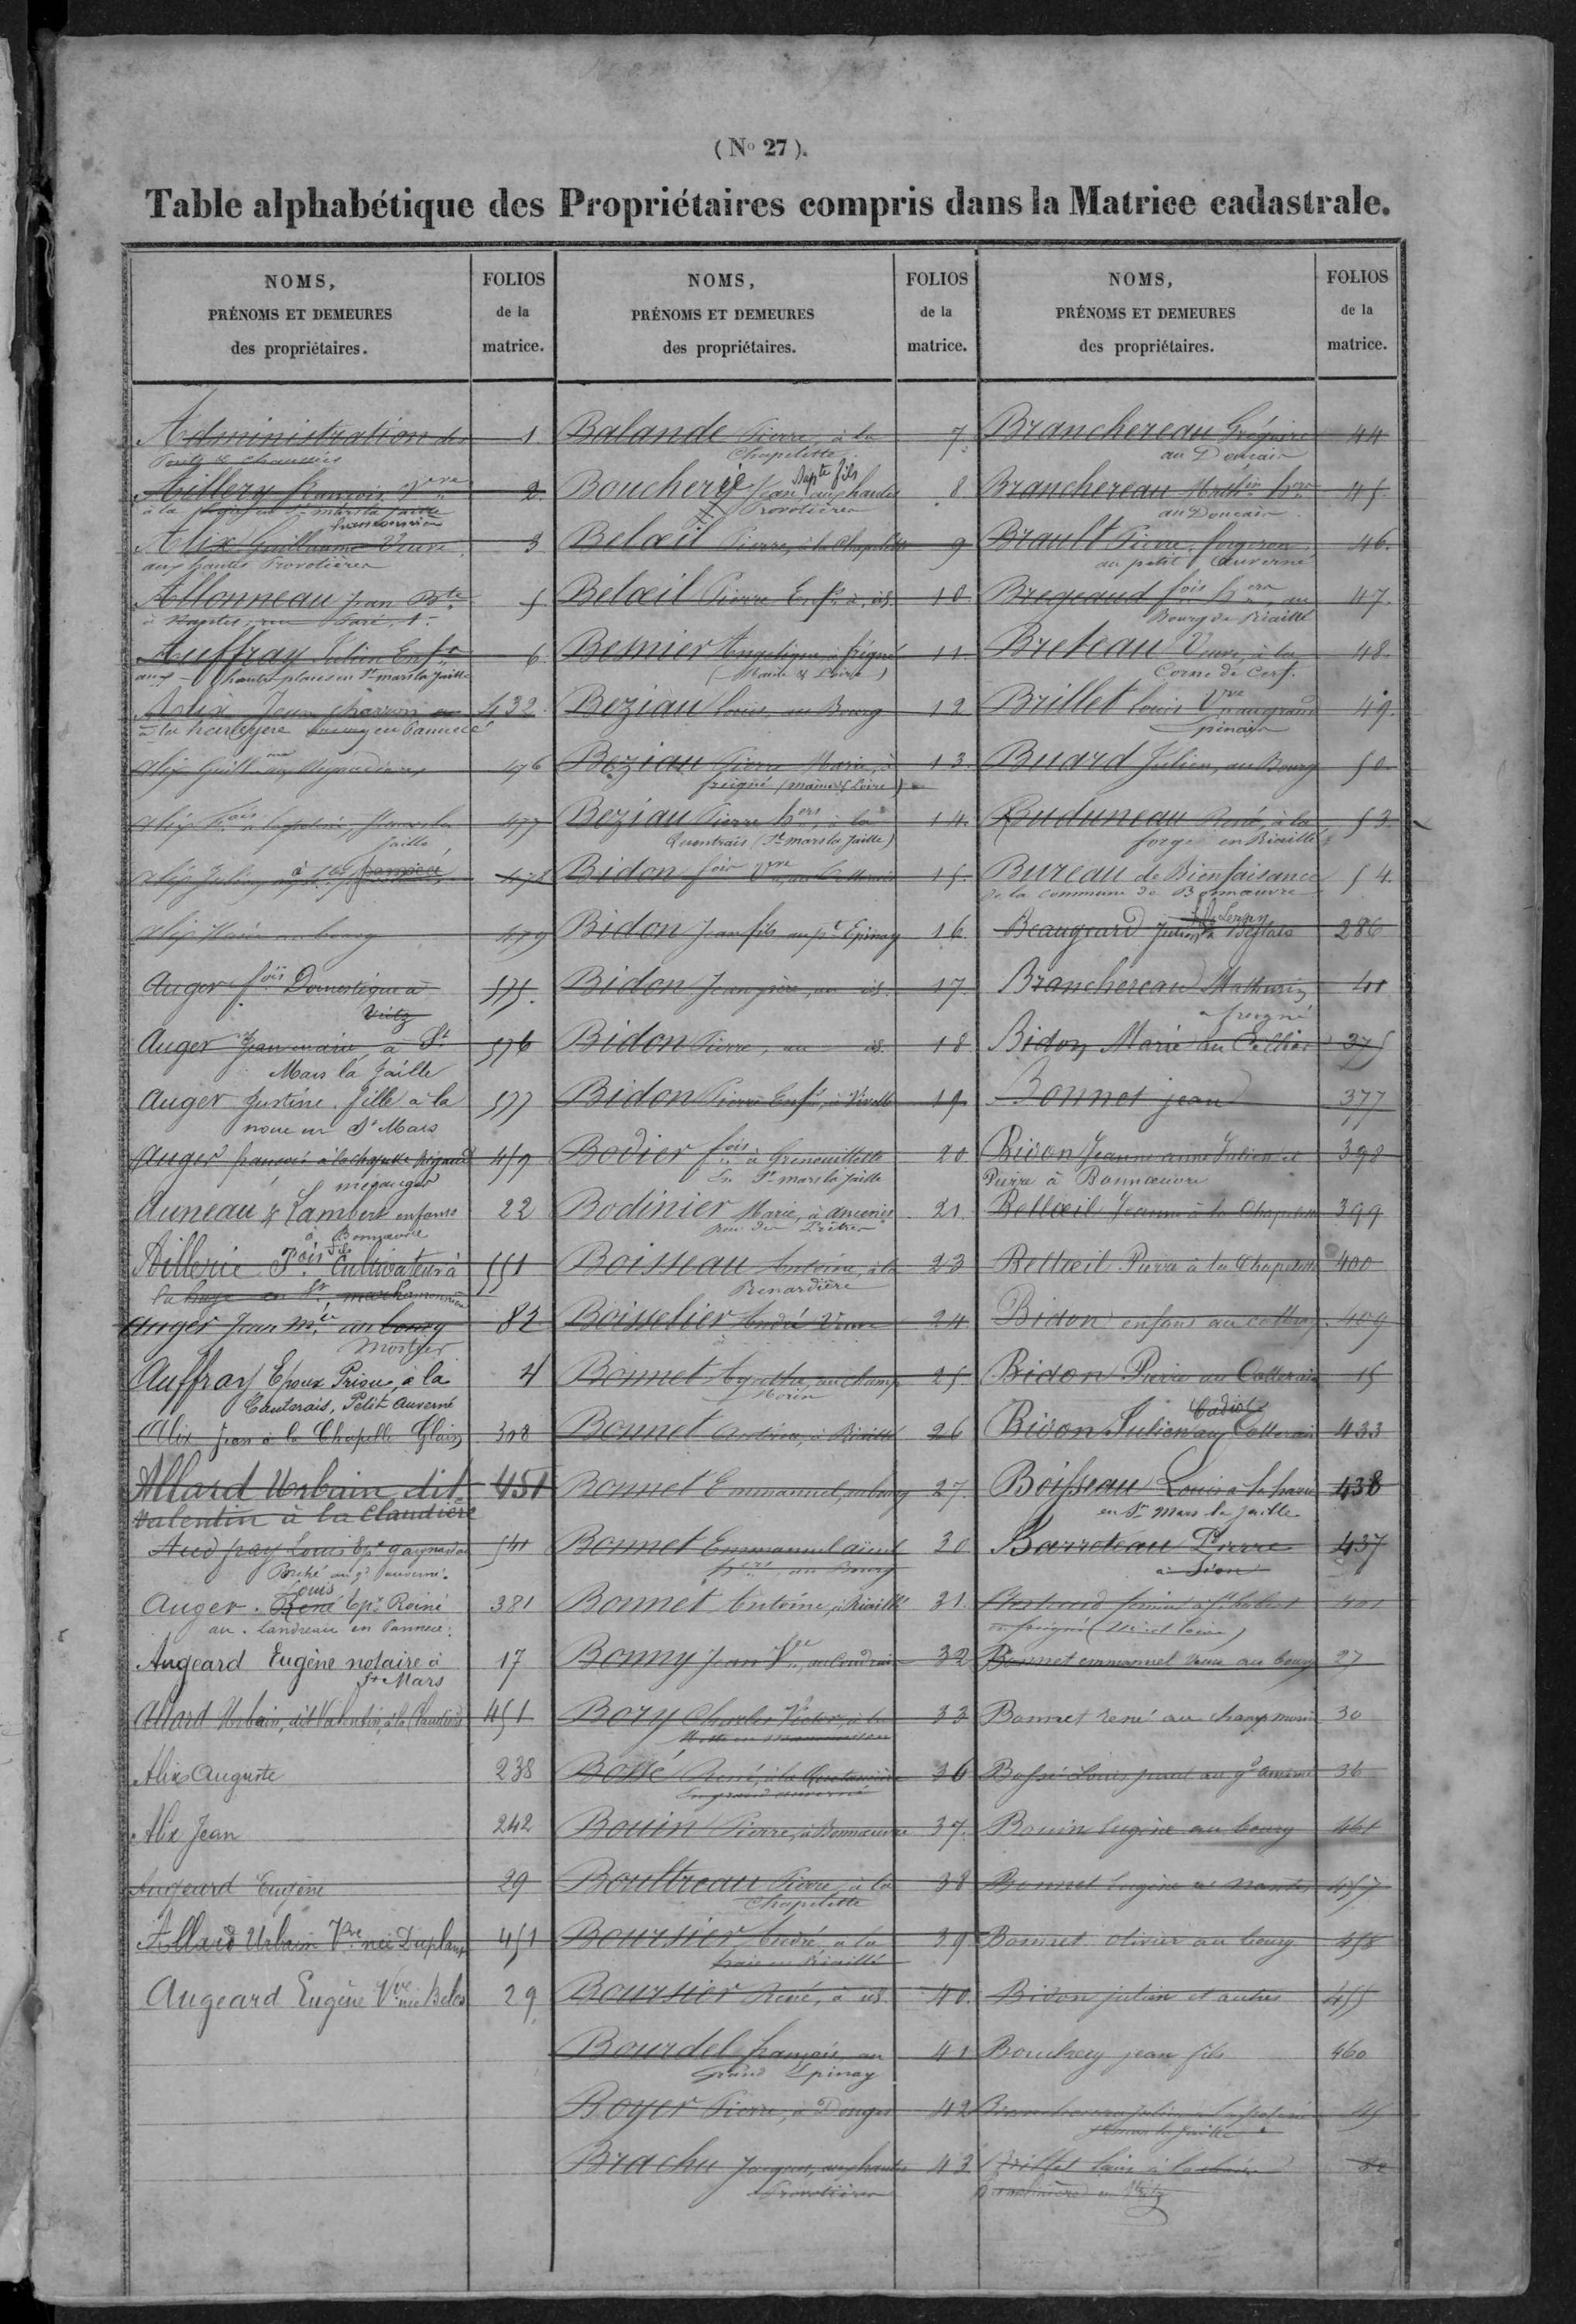 ( No 27 ).
Table alphabétique des Propriétaires compris dans la Matrice cadastrale.
NOMS,
PRÉNOMS ET DEMEURES
des propriétaires.
FOLIOS
de la
matrice.
NOMS,
PRÉNOMS ET DEMEURES
des propriétaires.
FOLIOS
de la
matrice.
NOMS,
PRÉNOMS ET DEMEURES
des propriétaires.
FOLIOS
de la
matrice.
Administration des 1
Ponts & chaussées
Aillery françois Vve 2
à la en St mars la jaille
Alix Guillaume Veuve 3
aux hautes Provotières
Allonneau Jean Bte 5
à Nantes, rue 1.
Auffray Julien Enfts 6
aux hautes places en St mars la jaille
Alix Jean charron 432
à la en Pannecé
Alix Guill 476
Alix Fois 477
Jaille
Alix Julien 478
Alix Marie au bourg 479
Auger fois Domestique à 575
Vritz
Auger Jean marie, à St 576
Mars la Jaille
Auger Justine fille à la 577
noue en St Mars
Auger françois à la chapelle 459
Auneau & Lambert enfants 22
à Bonnœuvre
Aillerie Fois fils Cultivateur à 551
la haye en St
Auger Jean Mie au bourg 82
Auffray Epoux Priou, à la 4
Petit Auverné
Alix Jean à la Chapelle Glain 308
Allard Urbain dit 451
Valentin à la Claudière
Auffray Louis 541
Auger. René Louis Epx Roiné 381
au Landreau en Pannecé.
Augeard Eugène notaire à 17
St Mars
Allard Urbain, dit Valentin, à la Claudière 451
Alix Auguste 238
Alix Jean 242
Augeard Eugène 29
Allard Urbain Vve née Duplan 451
Augeard Eugène Vve née 29
Balande Pierre, à la 7
Chapelette.
Boucherie Jean Bapte fils, aux hautes 8
Provotières
Belœil Pierre, à la Chapelette 9
Belœil Pierre Enfts, à id. 10
Besnier Angelique, à freigné 11
(Maine & Loire)
Beziau Louis, au Bourg 12
Beziau Pierre Marie, à 13
freigné (maine & Loire)
Beziau Pierre hers, à la 14
(St mars la jaille)
Bidon fois Vve, au 15
Bidon Jean fils au pt Epinay 16
Bidon Jean père, au id. 17
Bidon Pierre, au id. 18
Bidon Pierre Enfts, à 19
Bodier fois à Grenouillette 20
en St mars la jaille
Bodinier Marie, à Ancenis 21
rue des Prêtres
Boisseau Antoine, à la 23
Renardière
Boisselier André Veuve 24
à
Bonnet Agathe, au champ 25
Morin
Bonnet Andrée, à Riaillé 26
Bonnet Emmanuel, au bourg 27
Bonnet Emmanuel ainé 30
hers, au Bourg
Bonnet Antoine, à Riaillé 31
Bonny Jean Vve, au 32
Bory Charles Victor, à la 33
Bossé René, à la 36
en grand auverné
Bouin Pierre, à Bonnœuvre 37
Boultreau Pierre, à la 38
Chapelette
Boursier André à la 39
haie en Riaillé
Boursier René, à id. 40
Bourdel françois, au 41
Grand Epinay
Boyer Pierre, à Donges 42
Brachu Jacques, aux hautes 43
Provotières
Branchereau Grégoire 44
au Doucain
Branchereau Mathin hers 45
au Doucain
Brault Pierre, forgeron 46
au petit Auverné
Bregeaud fois hers, au 47
Bourg de Riaillé
Breteau Veuve, à la 48
Corne de Cerf.
Brillet Louis Vve, au grand 49
Epinay
Buard Julien, au Bourg 50
Buduneau René, à la 53
forge en Riaillé
Bureau de Bienfaisance 54
de la commune de Bonnœuvre
Beaugeard Julien 286
Branchereau Mathurin 41
à freigné
Bidon Marie au Cellier 375
Bonnet jean 377
Bidon Jeanne anne Julien et 398
Pierre à Bonnœuvre
Bellœil Jeanne à la Chapelette 399
Bellœil Pierre à la Chapelette 400
Bidon enfans au 409
Bidon Pierre au 15
Bidon Julien au 433
Boisseau Louis à la haie 438
en St Mars la Jaille
Barreteau Pierre 437
à Sion
401
en freigné
Bonnet emmanuel veuve au bourg 27
Bonnet René au champ morin 30
Bossé Louis au gd auverné 36
Bouin Eugène au bourg 461
Bonnet Eugène à Nantes 457
Bonnet olivier au bourg 458
Bidon julien et autres 455
Bouchery jean fils 460
Branchereau Julien 45
St mars la jaille
Brillet Louis à la
en Vritz